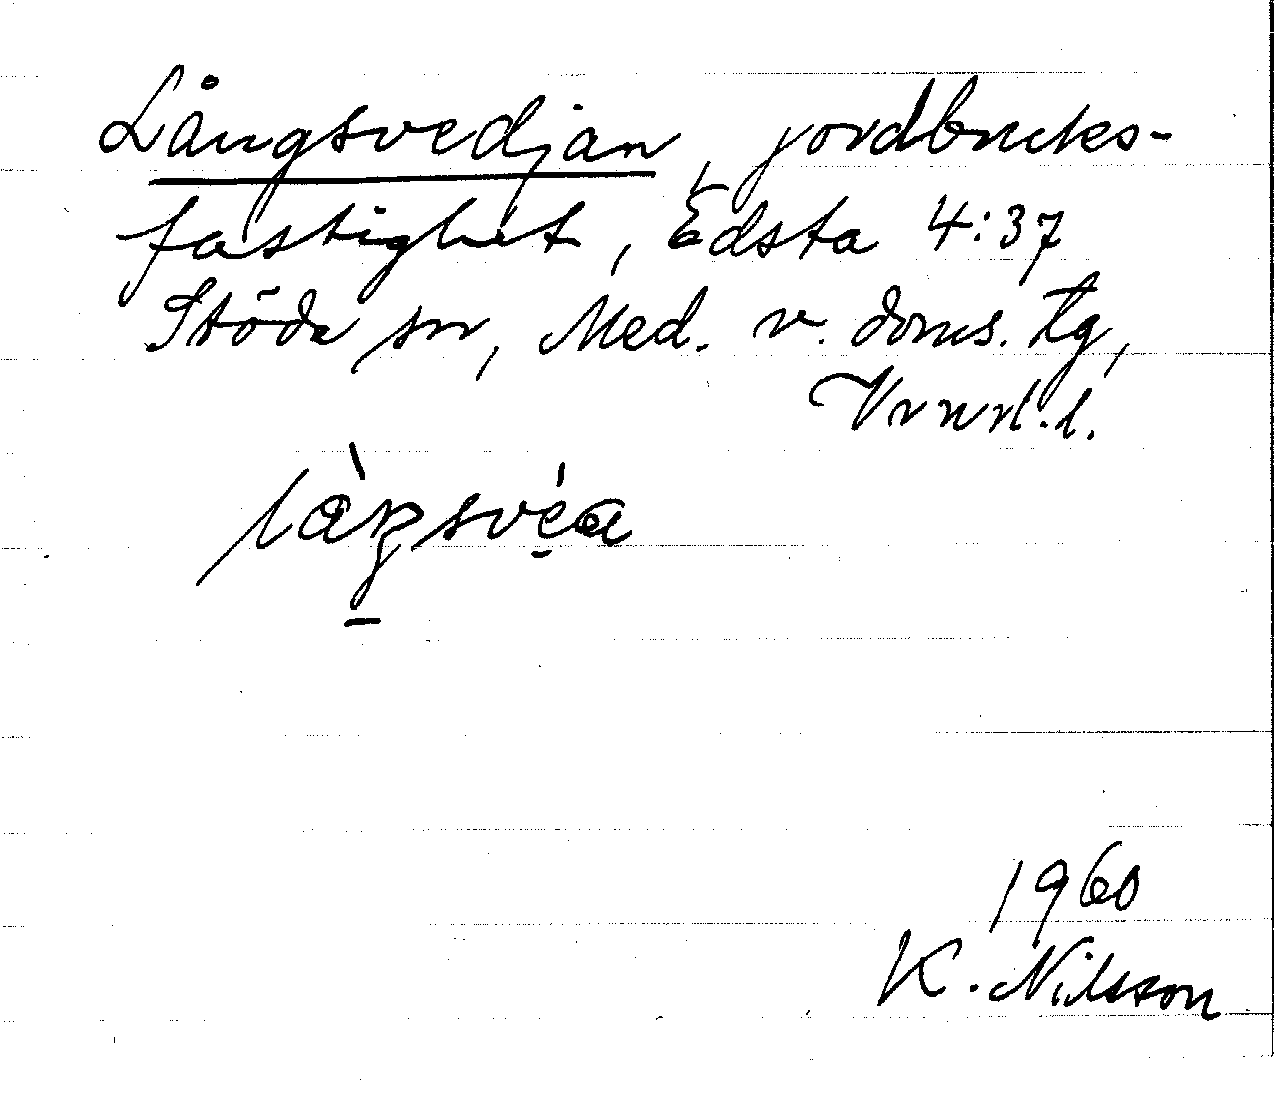 Långsvedjan, jordbruks-
fastighet, Edsta 4:37
Stöde sn, Med. v. doms. tg,
Vnrl. l.
1960
K. Nilsson